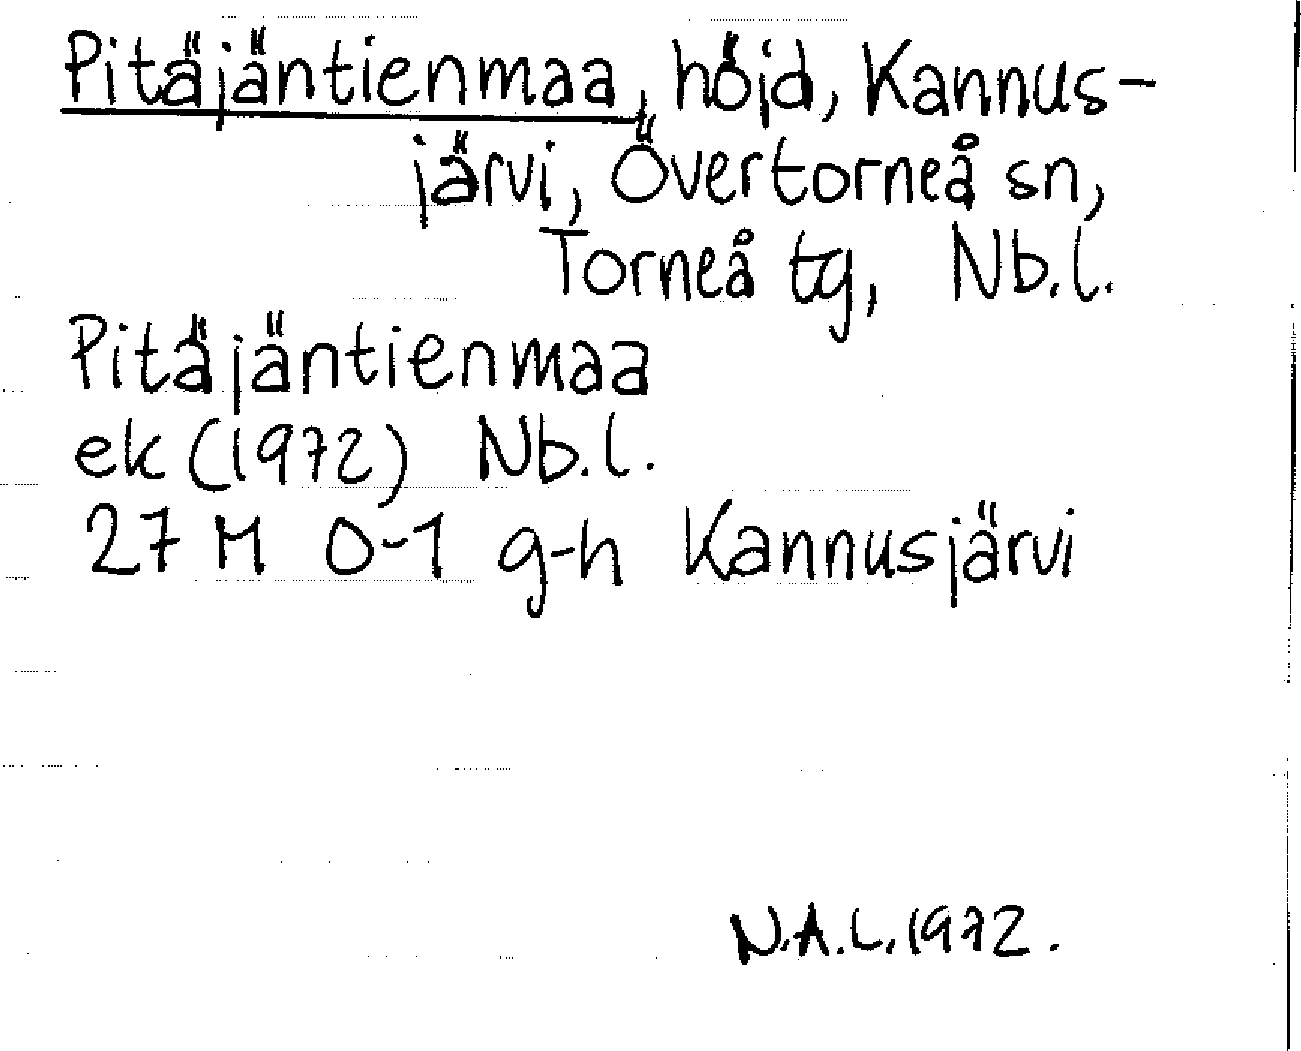 Pitäjäntienmaa, höjd, Kannus-
järvi, Övertorneå sn,
Torneå tg, Nb.l.
Pitäjäntienmaa
ek (1972) Nb.l.
27 M 0-1 g-h Kannusjärvi
N.A.L. 1972.